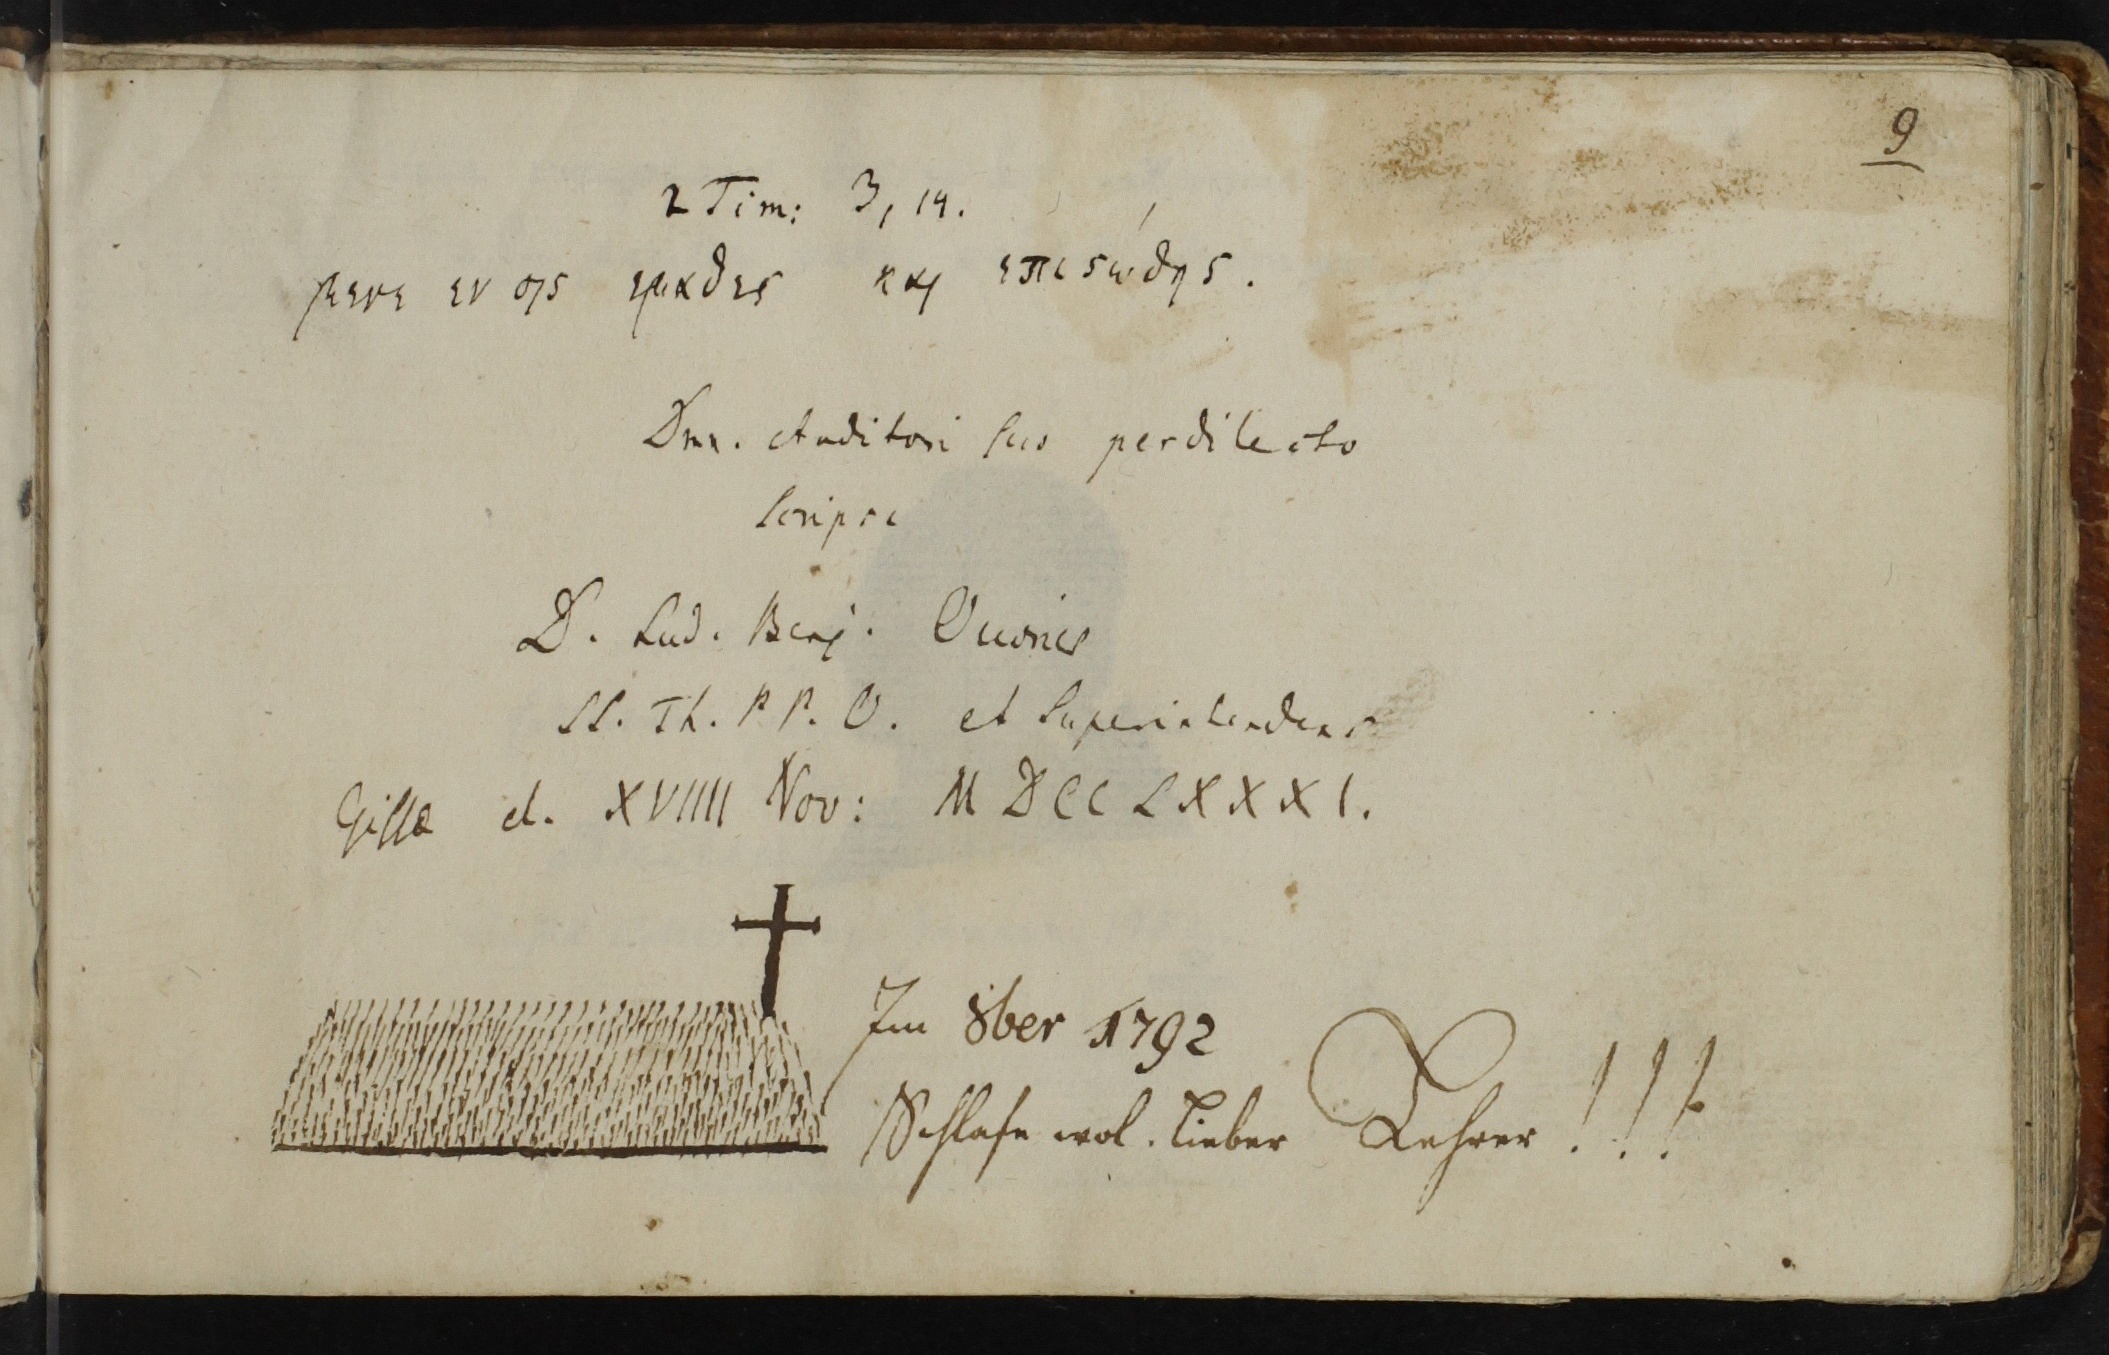 9
2 Tim: 3, 14.
μενε εν οις εμαθες και επιϛώθης.
Dnn. Auditori suo perdilecto
scripsi
D. Lud. Benj. Ouvrier
SS. Th. P. P. O. et Superintendens
Gissæ d. XVIIII Nov: MDCCLXXXI.
Im 8ber 1792
Schlafe wol. lieber Lehrer!!!